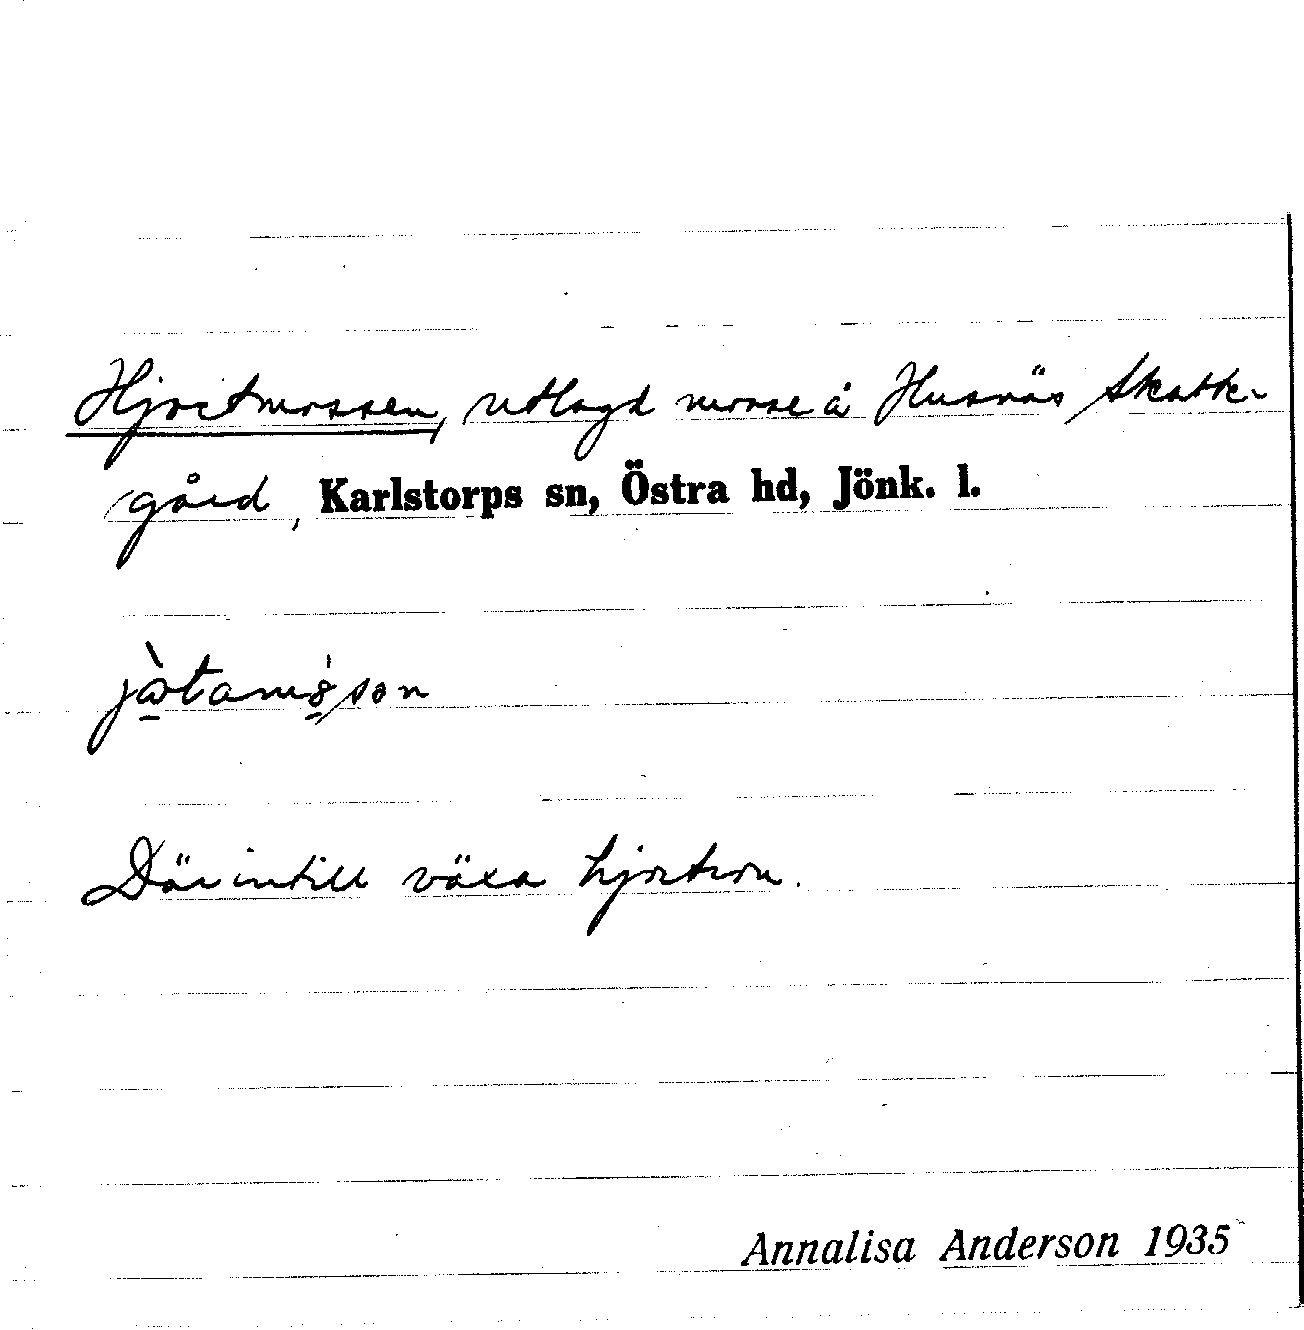 Hjortmossen, utlagd mosse å Husnäs Skatte-
gård, Karlstorps sn, Östra hd, Jönk. l.
Därintill växa hjortron.
Annalisa Anderson 1935